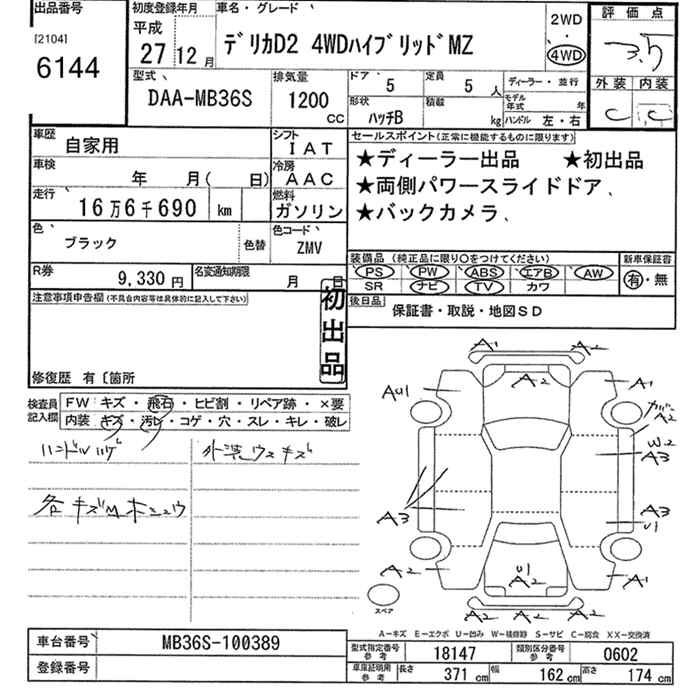 出品番号
[2104]
6144
初度登録年月
平成
27 12月
車名・グレード
デリカD2 4WDハイブリッドMZ
2WD
・
4WD
評価点
3.5
外装 内装
C C
型式
DAA-MB36S
排気量
1200
CC
ドア 5
定員 5人
形状 ハッチB
積載 kg
ディーラー・並行
モデル年式 年
ハンドル 左・右
車歴 自家用
シフト IAT
車検 年 月( 日)
冷房 AAC
走行 16万6千690 km
燃料 ガソリン
色 ブラック
色替
色コード ZMV
R券 9,330円
名変通知期限 月 日
セールスポイント(正常に機能するものに限ります)
★ディーラー出品 ★初出品
★両側パワースライドドア、
★バックカメラ、
装備品 (純正品に限り○をつけてください)
PS ・ PW ・ ABS ・ エアB ・ AW
SR ナビ TV カワ
新車保証書
有・無
後日品
保証書・取説・地図SD
注意事項申告欄(不具合内容等は具体的に記入して下さい)
初出品
修復歴 有〔箇所
検査員記入欄
FW キズ・飛石・ヒビ割・リペア跡・×要
内装 キズ・汚レ・コゲ・穴・スレ・キレ・破レ
ハンドルハゲ
外装ウスキズ
各キズ
A1 A2 A2
AU1 A1
カバー A2
W2
A3
A3
A3
U1
A2 U1 A2 A1
A2 A2 A2
スペア
A-キズ E-エクボ U-凹み W-補修跡 S-サビ C-腐食 XX-交換済
車台番号 MB36S-100389
登録番号
型式指定番号 参考 18147
類別区分番号 参考 0602
車庫証明用 参考 長さ 371 cm 幅 162 cm 高さ 174 cm